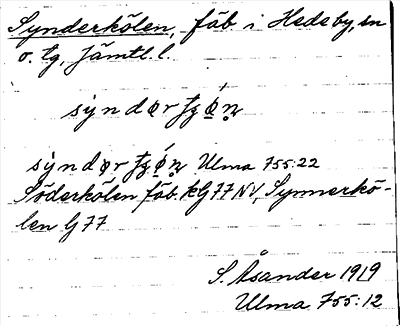 Synderkölen, fäb. i Hedeby, sn
o. lg, Jämtl. l.
Ulma 755:22
Söderkölen fäb. kG77NV, Synnerkö-
len G77
S. Åsander 1919
Ulma 755:12